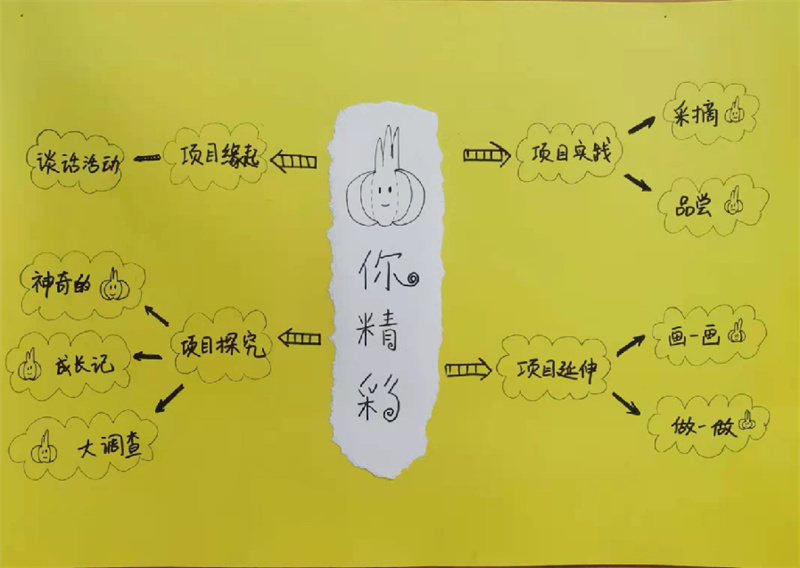 你
精
彩
项目缘起
谈话活动
项目探究
神奇的
成长记
大调查
项目实践
采摘
品尝
项目延伸
画一画
做一做